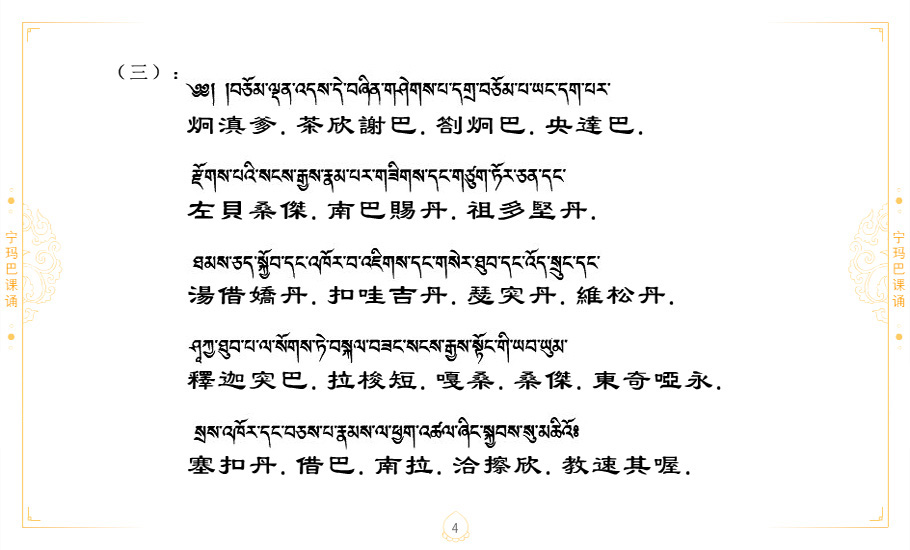 （三）：
༄༅། །བཅོམ་ལྡན་འདས་དེ་བཞིན་གཤེགས་པ་དགྲ་བཅོམ་པ་ཡང་དག་པར་
炯滇爹．茶欣謝巴．劄炯巴．央達巴．
རྫོགས་པའི་སངས་རྒྱས་རྣམ་པར་གཟིགས་དང་གཙུག་ཏོར་ཅན་དང་
左貝桑傑．南巴賜丹．祖多堅丹．
ཐམས་ཅད་སྐྱོབ་དང་འཁོར་བ་འཇིགས་དང་གསེར་ཐུབ་དང་འོད་སྲུང་དང་
湯借嬌丹．扣哇吉丹．瑟突丹．維松丹．
ཤཱཀྱ་ཐུབ་པ་ལ་སོགས་ཏེ་བསྐལ་བཟང་སངས་རྒྱས་སྟོང་གི་ཡབ་ཡུམ་
釋迦突巴．拉梭短．嘎桑．桑傑．東奇啞永．
སྲས་འཁོར་དང་བཅས་པ་རྣམས་ལ་ཕྱག་འཚལ་ཞིང་སྐྱབས་སུ་མཆིའོཿ
塞扣丹．借巴．南拉．洽擦欣．教速其喔．
宁玛巴课诵
宁玛巴课诵
4